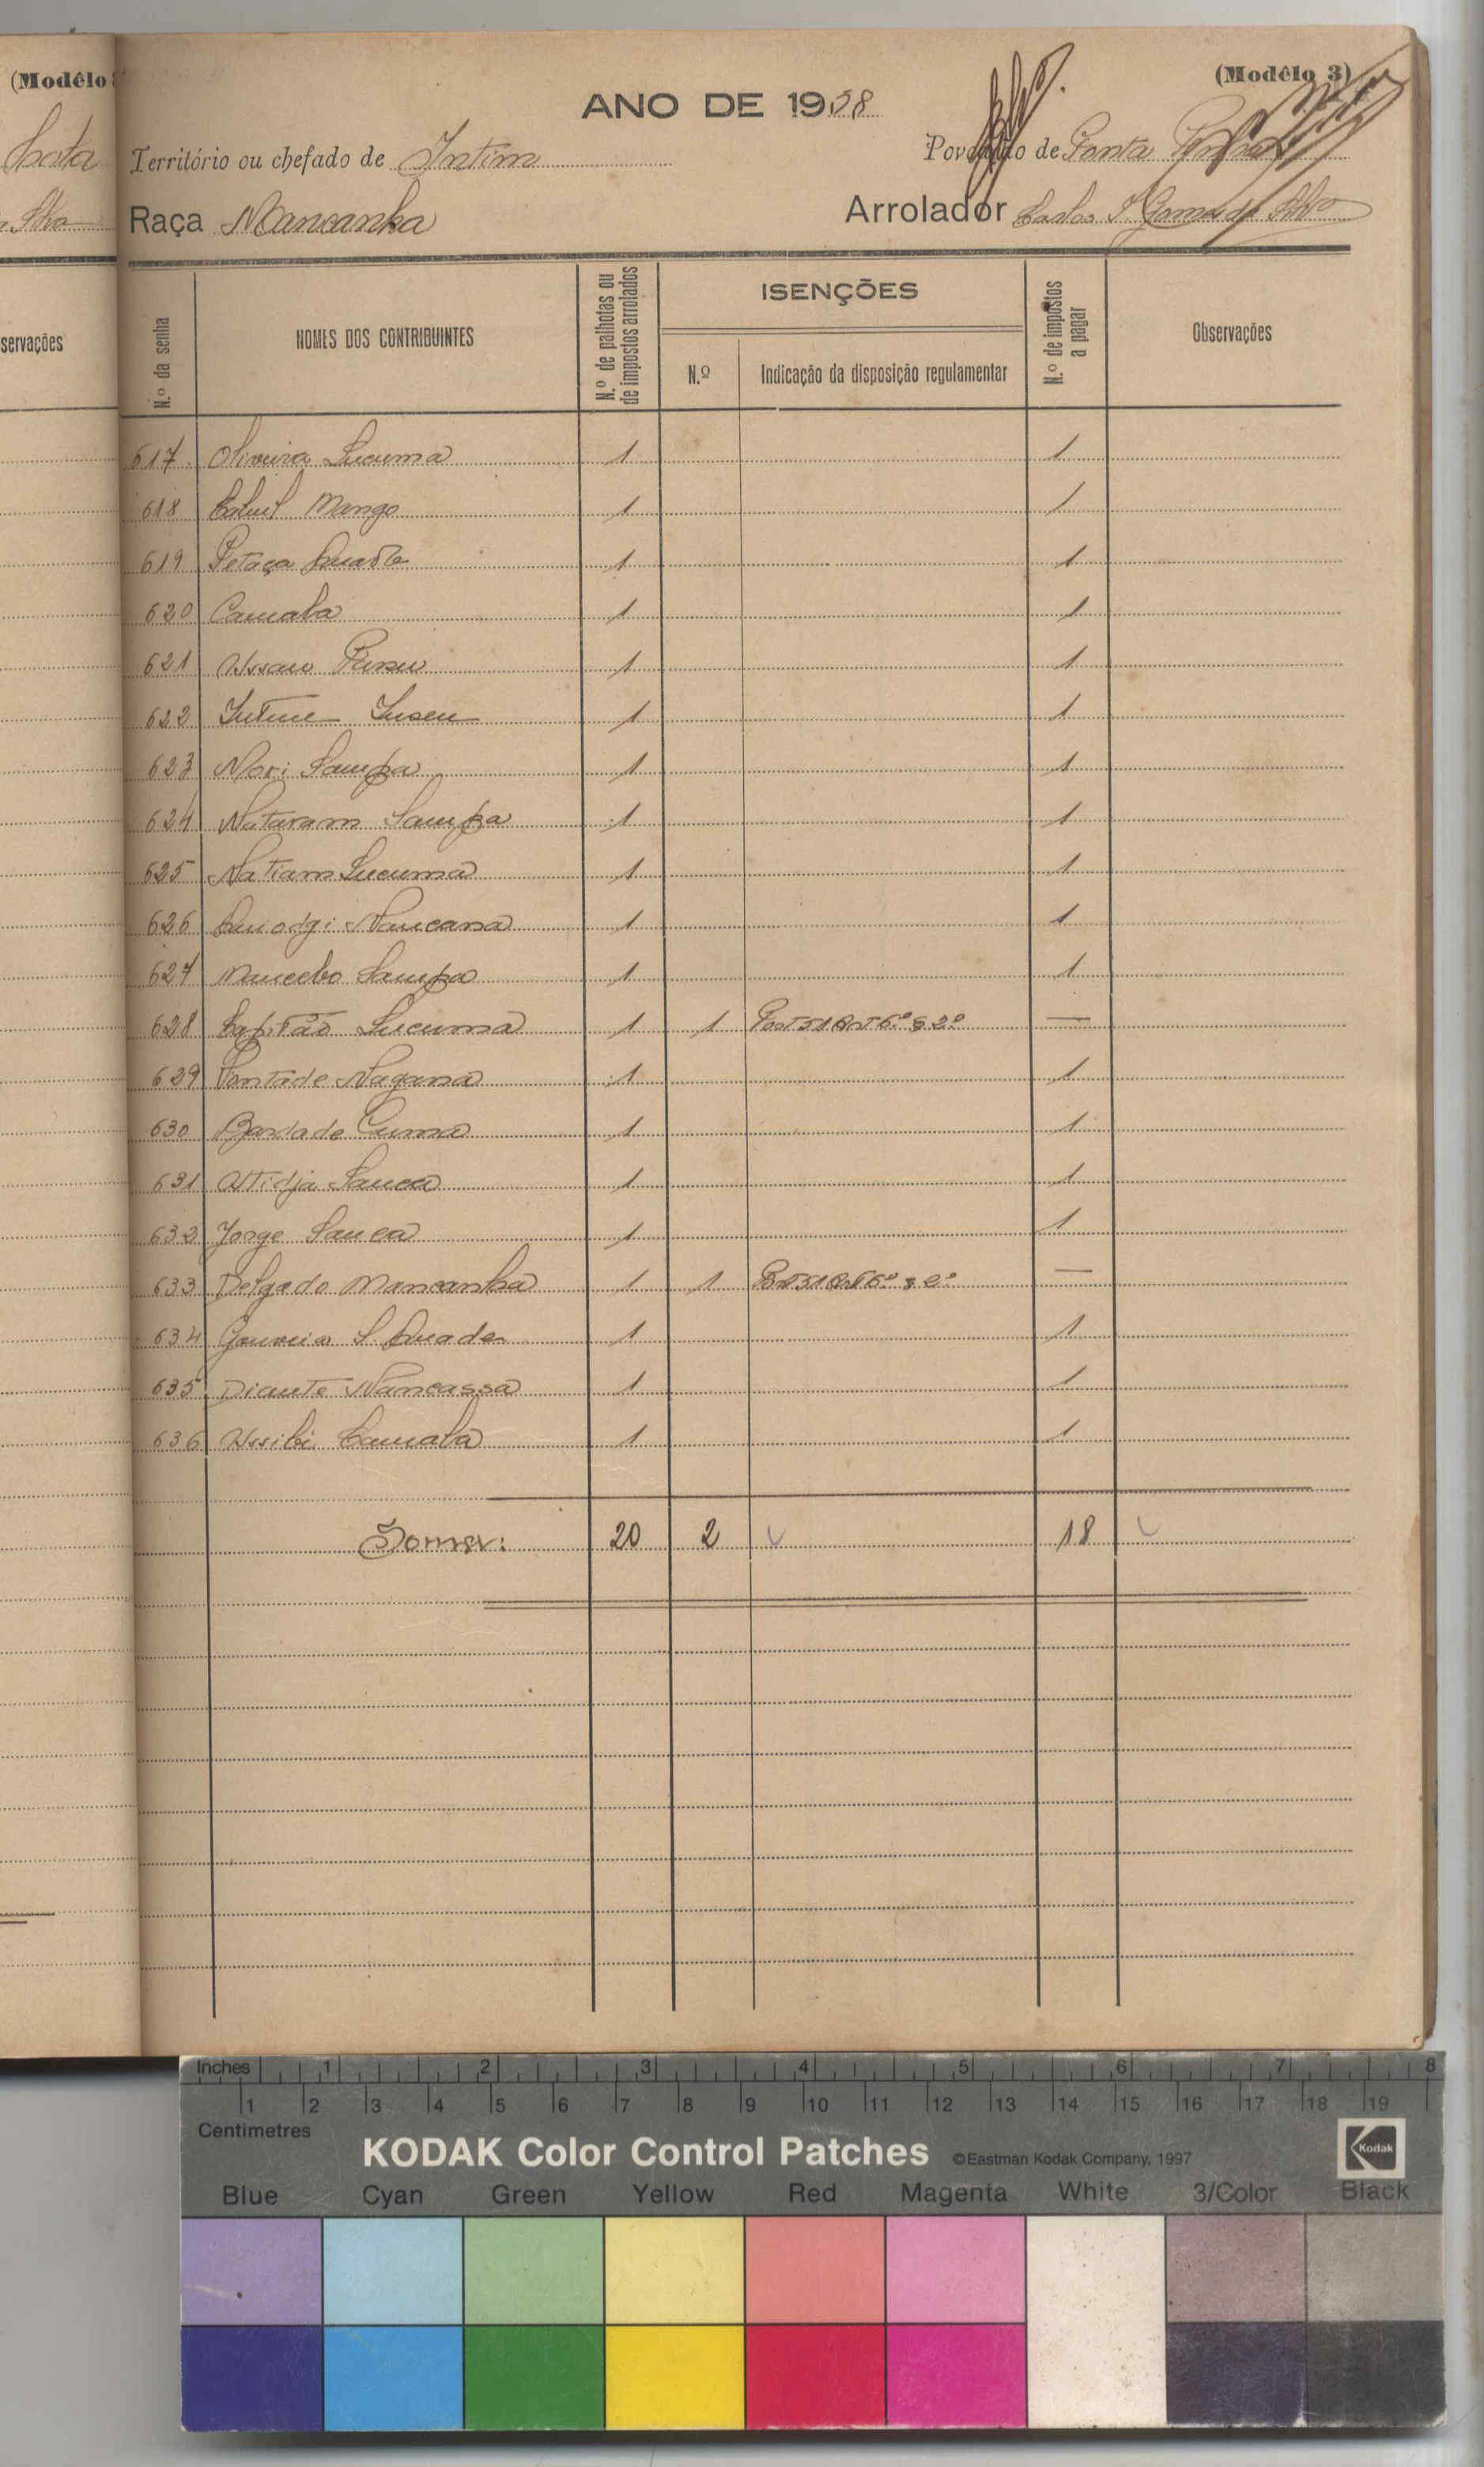 (Modêlo
(Modêlo 3)
ANO DE 1938
Território ou chefado de Intim
Povoação de Ponta
Raça Mancanha
Arrolador Carlos Gomes da Silva
servações
N.º da senha
NOMES DOS CONTRIBUINTES
N.º de palhotas ou de impostos arrolados
ISENÇÕES
N.º
Indicação da disposição regulamentar
N.º de impostos a pagar
Observações
617 Oliveira Lucuma 1 1
618 Mango 1 1
619 Petaça 1 1
620 Camala 1 1
621 1 1
622 1 1
623 Nori Sampa 1 1
624 Naturam Sampa 1 1
625 Natiam Lucuma 1 1
626 Nancana 1 1
627 Mancebo Sampa 1 1
628 Capitão Lucuma 1 1 Port 51 Art 6.º § 2.º —
629 Vontade Nagana 1 1
630 Bardade Cuma 1 1
631 Atidja Sanca 1 1
632 Jorge Sanca 1 1
633 Delgado Mancanha 1 1 Port 51 Art 6.º § 2.º —
634 Gouveia S. 1 1
635 Diante Nancassa 1 1
636 Ussibi Camala 1 1
Soma: 20 2 18
Inches 1 2 3 4 5 6 7 8
1 2 3 4 5 6 7 8 9 10 11 12 13 14 15 16 17 18 19
Centimetres
KODAK Color Control Patches ©Eastman Kodak Company, 1997 Kodak
Blue Cyan Green Yellow Red Magenta White 3/Color Black